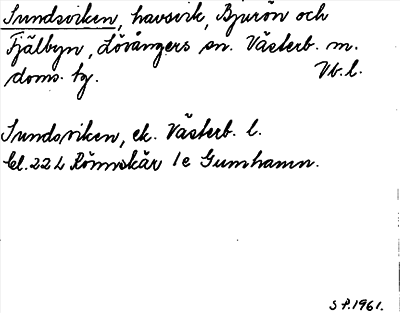 Sundsviken, havsvik, Bjurön och
Fjälbyn, Lövångers sn. Västerb. m.
doms. tg. Vb. l.
Sundsviken, ek. Västerb. l.
bl. 22 L Rönnskär 1e Gumhamn.
S P. 1961.